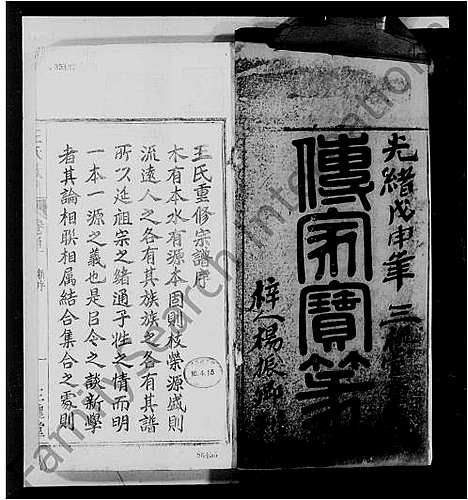 光緒戊申年 三槐
傳家寶
梓人楊振鄉
王氏重修宗譜序
木有本水有源本固則枝榮源盛則
流遠人之各有其族族之各有其譜
所以延祖宗之緒通子姓之情而明
一本一源之義也是自令之談新學
者其論相聯相属結合集合之家則
三槐堂
16.4.15
FamilySearch International